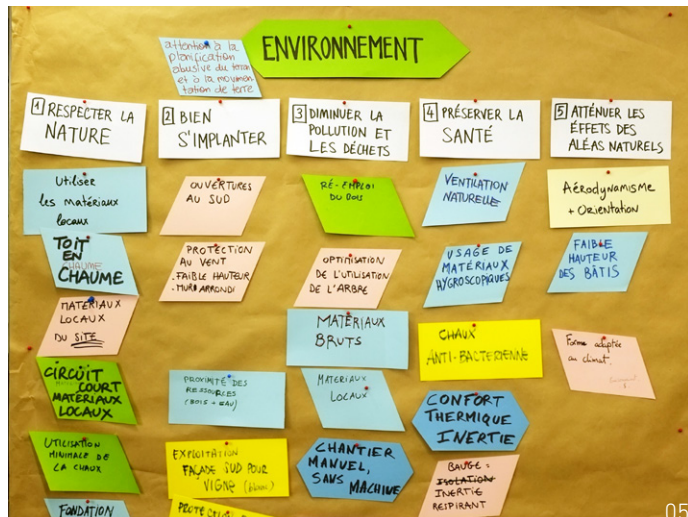 ENVIRONNEMENT
attention à la
planification
abusive du terrain
et à la mouvemen
tation de terre
1 RESPECTER LA
NATURE
Utiliser
les matériaux
locaux
TOIT
EN
CHAUME
CHAUME
MATÉRIAUX
LOCAUX
DU SITE
CIRCUIT
COURT
MATÉRIAUX
LOCAUX
UTILISATION
MINIMALE DE
LA CHAUX
FONDATION
2 BIEN
S'IMPLANTER
OUVERTURES
AU SUD
PROTECTION
AU VENT
. FAIBLE HAUTEUR
. MURS ARRONDI
PROXIMITÉ DES
RESSOURCES
(BOIS - EAU)
EXPLOITATION
FAÇADE SUD POUR
VIGNE (blanc)
3 DIMINUER LA
POLLUTION ET
LES DÉCHETS
RÉ-EMPLOI
DU BOIS
OPTIMISATION
DE L'UTILISATION
DE L'ARBRE
MATÉRIAUX
BRUTS
MATERIAUX
LOCAUX
CHANTIER
MANUEL,
SANS MACHINE
4 PRÉSERVER LA
SANTÉ
VENTILATION
NATURELLE
USAGE DE
MATÉRIAUX
HYGROSCOPIQUES
CHAUX
ANTI-BACTERIENNE
CONFORT
THERMIQUE
INERTIE
BAUGE :
ISOLATION
INERTIE
RESPIRANT
5 ATTÉNUER LES
EFFETS DES
ALÉAS NATURELS
AÉRODYNAMISME
+ Orientation
FAIBLE
HAUTEUR
DES BÂTIS
Forme adaptée
au climat.
05